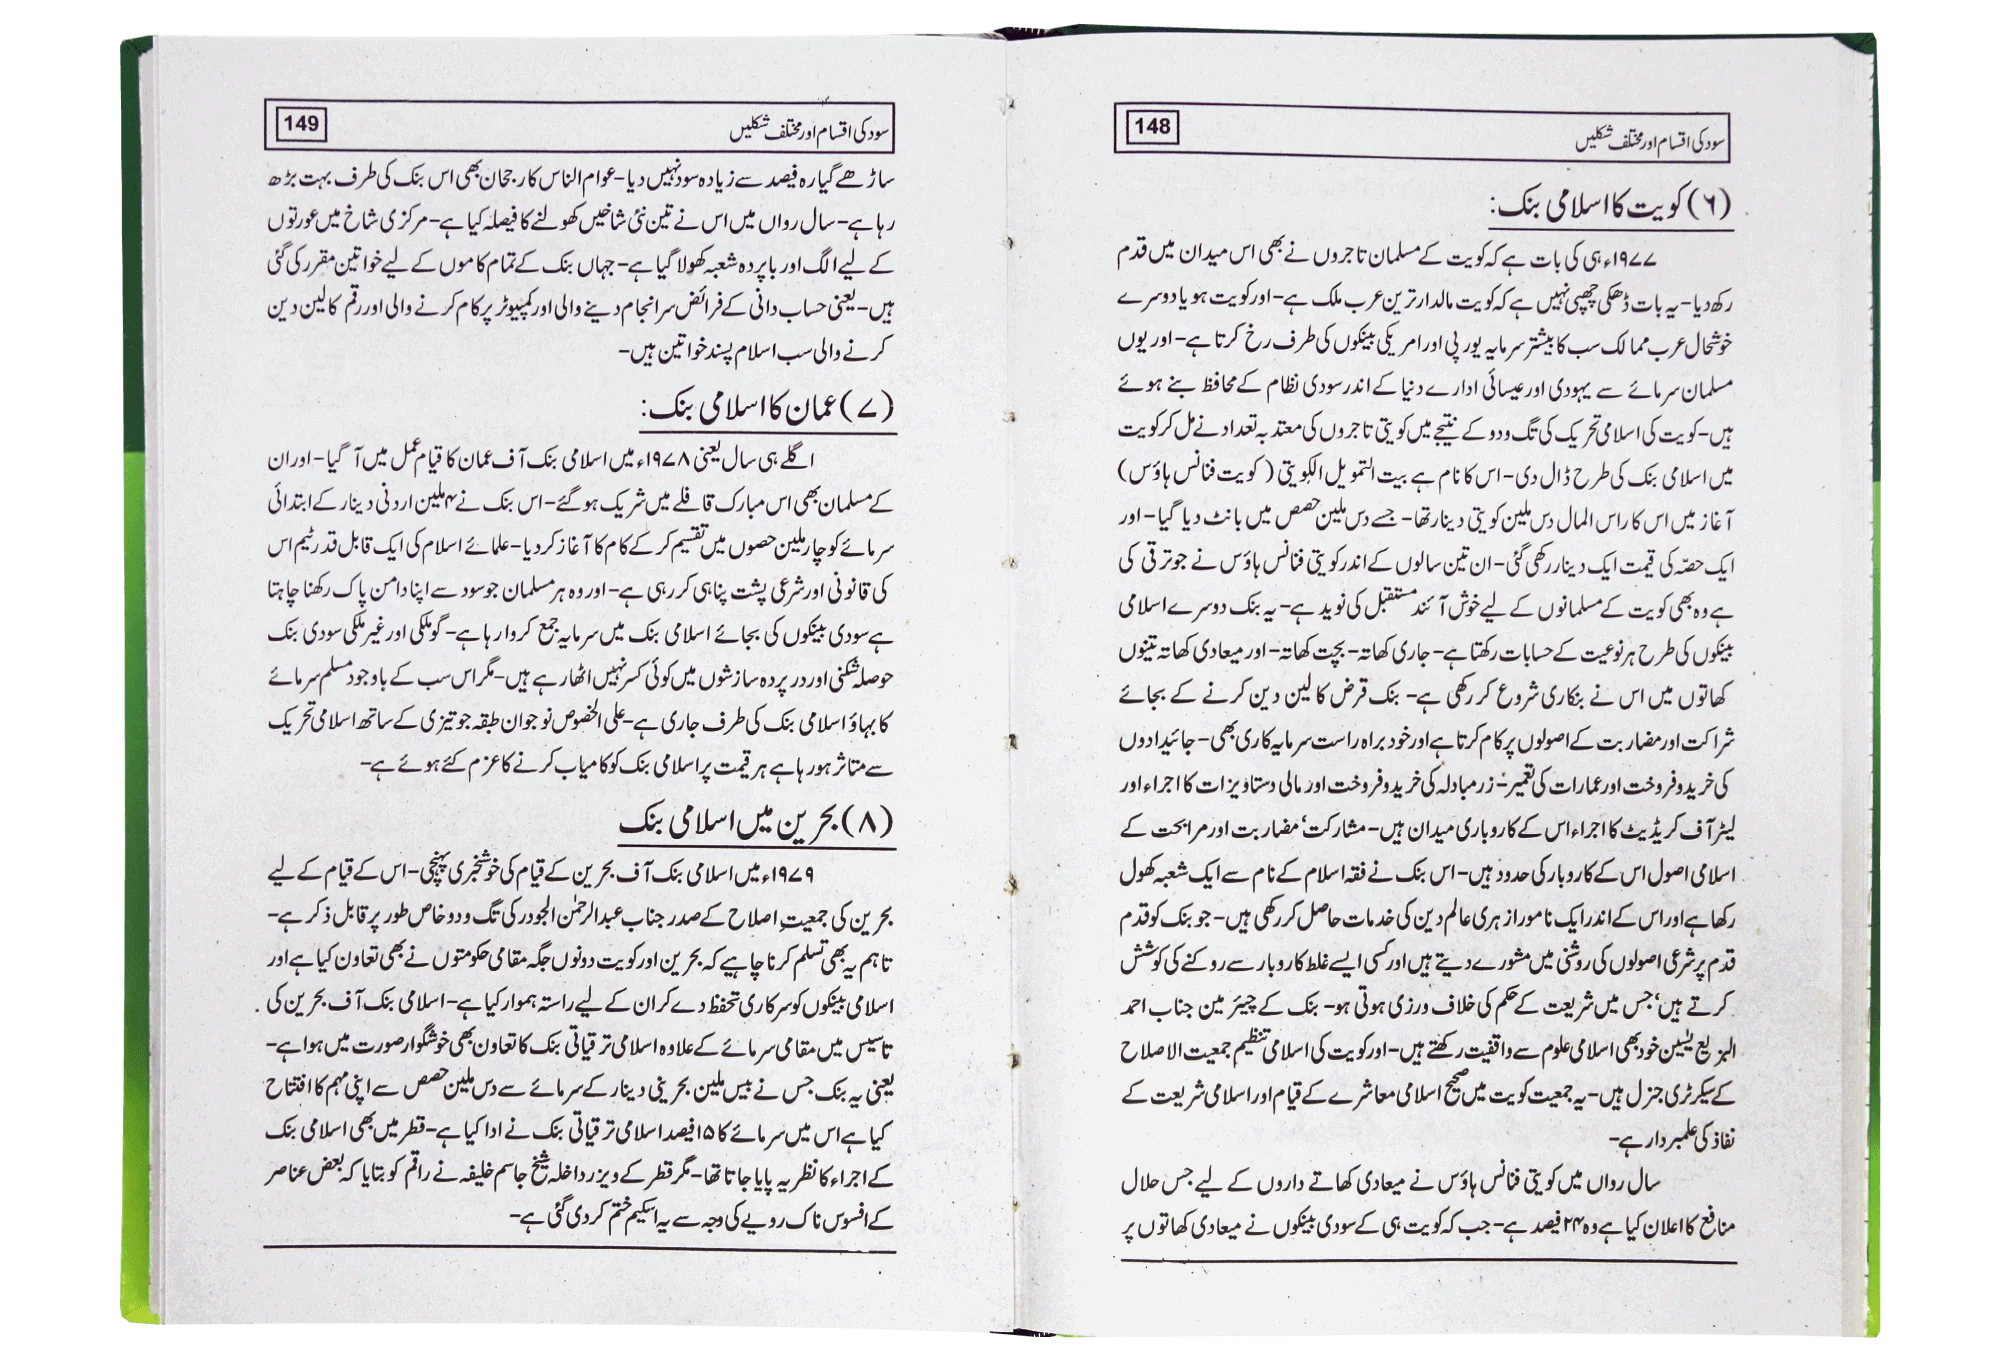 سود کی اقسام اور مختلف شکلیں
148
(۶) کویت کا اسلامی بنک:
۱۹۷۷ء ہی کی بات ہے کہ کویت کے مسلمان تاجروں نے بھی اس میدان میں قدم
رکھ دیا۔ یہ بات ڈھکی چھپی نہیں ہے کہ کویت مالدار ترین عرب ملک ہے۔ اور کویت ہو یا دوسرے
خوشحال عرب ممالک سب کا بیشتر سرمایہ یورپی اور امریکی بینکوں کی طرف رخ کرتا ہے۔ اور یوں
مسلمان سرمائے سے یہودی اور عیسائی ادارے دنیا کے اندر سودی نظام کے محافظ بنے ہوئے
ہیں۔ کویت کی اسلامی تحریک کی تگ و دو کے نتیجے میں کویتی تاجروں کی معتدبہ تعداد نے مل کر کویت
میں اسلامی بنک کی طرح ڈال دی۔ اس کا نام ہے بیت التمویل الکویتی (کویت فنانس ہاؤس)
آغاز میں اس کا راس المال دس ملین کویتی دینار تھا۔ جسے دس ملین حصص میں بانٹ دیا گیا۔ اور
ایک حصّہ کی قیمت ایک دینار رکھی گئی۔ ان تین سالوں کے اندر کویتی فنانس ہاؤس نے جو ترقی کی
ہے وہ بھی کویت کے مسلمانوں کے لیے خوش آئند مستقبل کی نوید ہے۔ یہ بنک دوسرے اسلامی
بینکوں کی طرح ہر نوعیت کے حسابات رکھتا ہے۔ جاری کھاتہ۔ بچت کھاتہ۔ اور میعادی کھاتہ تینوں
کھاتوں میں اس نے بنکاری شروع کر رکھی ہے۔ بنک قرض کا لین دین کرنے کے بجائے
شراکت اور مضاربت کے اصولوں پر کام کرتا ہے اور خود براہ راست سرمایہ کاری بھی۔ جائیدادوں
کی خرید و فروخت اور عمارات کی تعمیر۔ زرمبادلہ کی خرید و فروخت اور مالی دستاویزات کا اجراء اور
لیٹر آف کریڈیٹ کا اجراء اس کے کاروباری میدان ہیں۔ مشارکت‘ مضاربت اور مرابحت کے
اسلامی اصول اس کے کاروبار کی حدود ہیں۔ اس بنک نے فقہ اسلام کے نام سے ایک شعبہ کھول
رکھا ہے اور اس کے اندر ایک نامور ازہری عالم دین کی خدمات حاصل کر رکھی ہیں۔ جو بنک کو قدم
قدم پر شرعی اصولوں کی روشنی میں مشورے دیتے ہیں اور کسی ایسے غلط کاروبار سے روکنے کی کوشش
کرتے ہیں‘ جس میں شریعت کے حکم کی خلاف ورزی ہوتی ہو۔ بنک کے چیئرمین جناب احمد
البزیع یٰسین خود بھی اسلامی علوم سے واقفیت رکھتے ہیں۔ اور کویت کی اسلامی تنظیم جمعیت الاصلاح
کے سیکرٹری جنرل ہیں۔ یہ جمعیت کویت میں صحیح اسلامی معاشرے کے قیام اور اسلامی شریعت کے
نفاذ کی علمبردار ہے۔
سال رواں میں کویتی فنانس ہاؤس نے میعادی کھاتے داروں کے لیے جس حلال
منافع کا اعلان کیا ہے وہ ۲۴ فیصد ہے۔ جب کہ کویت ہی کے سودی بینکوں نے میعادی کھاتوں پر
سود کی اقسام اور مختلف شکلیں
149
ساڑھے گیارہ فیصد سے زیادہ سود نہیں دیا۔ عوام الناس کا رجحان بھی اس بنک کی طرف بہت بڑھ
رہا ہے۔ سال رواں میں اس نے تین نئی شاخیں کھولنے کا فیصلہ کیا ہے۔ مرکزی شاخ میں عورتوں
کے لیے الگ اور باپردہ شعبہ کھولا گیا ہے۔ جہاں بنک کے تمام کاموں کے لیے خواتین مقرر کی گئی
ہیں۔ یعنی حساب دانی کے فرائض سرانجام دینے والی اور کمپیوٹر پر کام کرنے والی اور رقم کا لین دین
کرنے والی سب اسلام پسند خواتین ہیں۔
(۷) عمان کا اسلامی بنک:
اگلے ہی سال یعنی ۱۹۷۸ء میں اسلامی بنک آف عمان کا قیام عمل میں آ گیا۔ اور ان
کے مسلمان بھی اس مبارک قافلے میں شریک ہو گئے۔ اس بنک نے ۴ ملین اردنی دینار کے ابتدائی
سرمائے کو چار ملین حصوں میں تقسیم کر کے کام کا آغاز کر دیا۔ علمائے اسلام کی ایک قابل قدر ٹیم اس
کی قانونی اور شرعی پشت پناہی کر رہی ہے۔ اور وہ ہر مسلمان جو سود سے اپنا دامن پاک رکھنا چاہتا
ہے سودی بینکوں کی بجائے اسلامی بنک میں سرمایہ جمع کروا رہا ہے۔ گو ملکی اور غیر ملکی سودی بنک
حوصلہ شکنی اور در پردہ سازشوں میں کوئی کسر نہیں اٹھا رہے ہیں۔ مگر اس سب کے باوجود مسلم سرمائے
کا بہاؤ اسلامی بنک کی طرف جاری ہے۔ علی الخصوص نوجوان طبقہ جو تیزی کے ساتھ اسلامی تحریک
سے متاثر ہو رہا ہے ہر قیمت پر اسلامی بنک کو کامیاب کرنے کا عزم کئے ہوئے ہے۔
(۸) بحرین میں اسلامی بنک
۱۹۷۹ء میں اسلامی بنک آف بحرین کے قیام کی خوشخبری پہنچی۔ اس کے قیام کے لیے
بحرین کی جمعیتِ اصلاح کے صدر جناب عبدالرحمٰن الجودر کی تگ و دو خاص طور پر قابل ذکر ہے۔
تاہم یہ بھی تسلم کرنا چاہیے کہ بحرین اور کویت دونوں جگہ مقامی حکومتوں نے بھی تعاون کیا ہے اور
اسلامی بینکوں کو سرکاری تحفظ دے کر ان کے لیے راستہ ہموار کیا ہے۔ اسلامی بنک آف بحرین کی
تاسیس میں مقامی سرمائے کے علاوہ اسلامی ترقیاتی بنک کا تعاون بھی خوشگوار صورت میں ہوا ہے۔
یعنی یہ بنک جس نے بیس ملین بحرینی دینار کے سرمائے سے دس ملین حصص سے اپنی مہم کا افتتاح
کیا ہے اس میں سرمائے کا ۱۵ فیصد اسلامی ترقیاتی بنک نے ادا کیا ہے۔ قطر میں بھی اسلامی بنک
کے اجراء کا نظریہ پایا جاتا تھا۔ مگر قطر کے ویزر داخلہ شیخ جاسم خلیفہ نے راقم کو بتایا کہ بعض عناصر
کے افسوس ناک رویے کی وجہ سے یہ اسکیم ختم کر دی گئی ہے۔